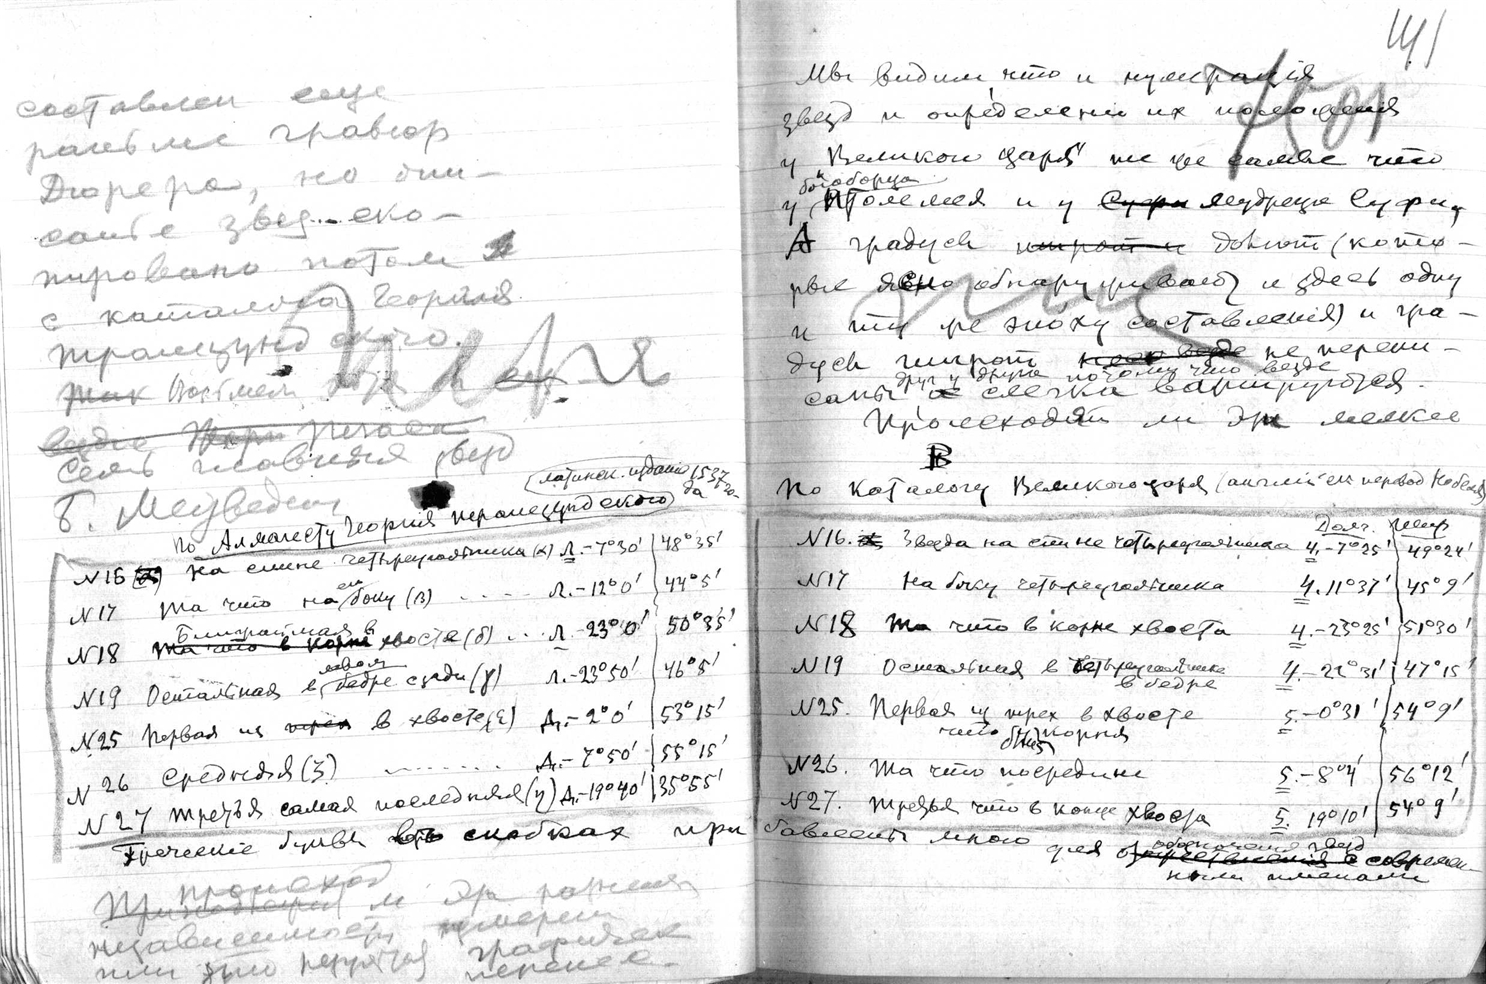 составлен еще
раньше гравюр
Дюрера, но опи-
сание звезд ско-
пировано потом
с каталога Георгия
трапезундского.
Возьмем
везде
Семь главных звезд
Б. Медведицы
(латинск. издание 1537 го-
да
по Алмагесту Георгия трапезундского
N16 на спине четыреугольника (α) Л.–7°30′ 48°35′
N17 Та что на ея боку (β) . . . . . Л.–12°0′ 44°5′
Ближайшая в
N18 Та что в корне хвоста (δ) ... Л.–23°0′ 50°35′
N19 Остальная в левом бедре сзади (γ) Л.–23°50′ 46°5′
N25 Первая из трех в хвосте (ε) Д.–2°0′ 53°15′
N26 Средняя (ζ) . . . . . . . Д.–7°50′ 55°15′
N27 третья самая последняя (η) Д.–19°40′ 35°55′
Греческие буквы в скобках при
происход
ли эта разница
независимость измерен
или
141
1501
Мы видим что и нумерация
звезд и определения их положения
у Великого царя те же самые что
богоборца
у Птолемея и у мудреца Суфи,
А градусы долгот (кото-
рые ясно обнаруживают и здесь одну
и ту же эпоху составления) и гра-
дусы широт не перепи-
саны друг у друга потому что везде
слегка варьируются.
Происходят ли эти мелкие
В
По каталогу Великого царя (английский перевод Кнобеля)
Долг. Шир
N16. Звезда на спине четыреугольника 4.–7°25′ 49°24′
N17 На боку четыреугольника 4. 11°37′ 45°9′
N18 Та что в корне хвоста 4.–23°25′ 51°30′
N19 Остальная в четыреугольнике 4.–22°31′ 47°15′
в бедре
N25. Первая из трех в хвосте 5.–0°31′ 54°9′
что близ корня
N26. Та что посредине 5.–8°4′ 56°12′
N27. Третья что в конце хвоста 5. 19°10′ 54°9′
бавлены мною для обозначения звезд
современ-
ными именами